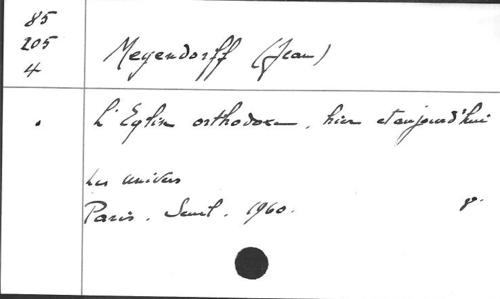 85
205
4
Meyendorff (Jean)
L'Eglise orthodoxe, hier et aujourd'hui
Les univers
Paris. Seuil. 1960. 8°